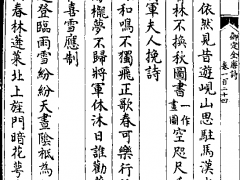 御定全唐詩
卷一百二十四
依然見昔遊峴山思駐馬漢
林不換秋圖書一作畫圖空咫尺
軍夫人挽詩
和鳴不獨飛正歌春可樂行
櫬夢不歸將軍休沐日誰勸
喜雪應制
登臨雨雪紛紛天晝陰秪為
春林蓬萊北上旌門暗花萼